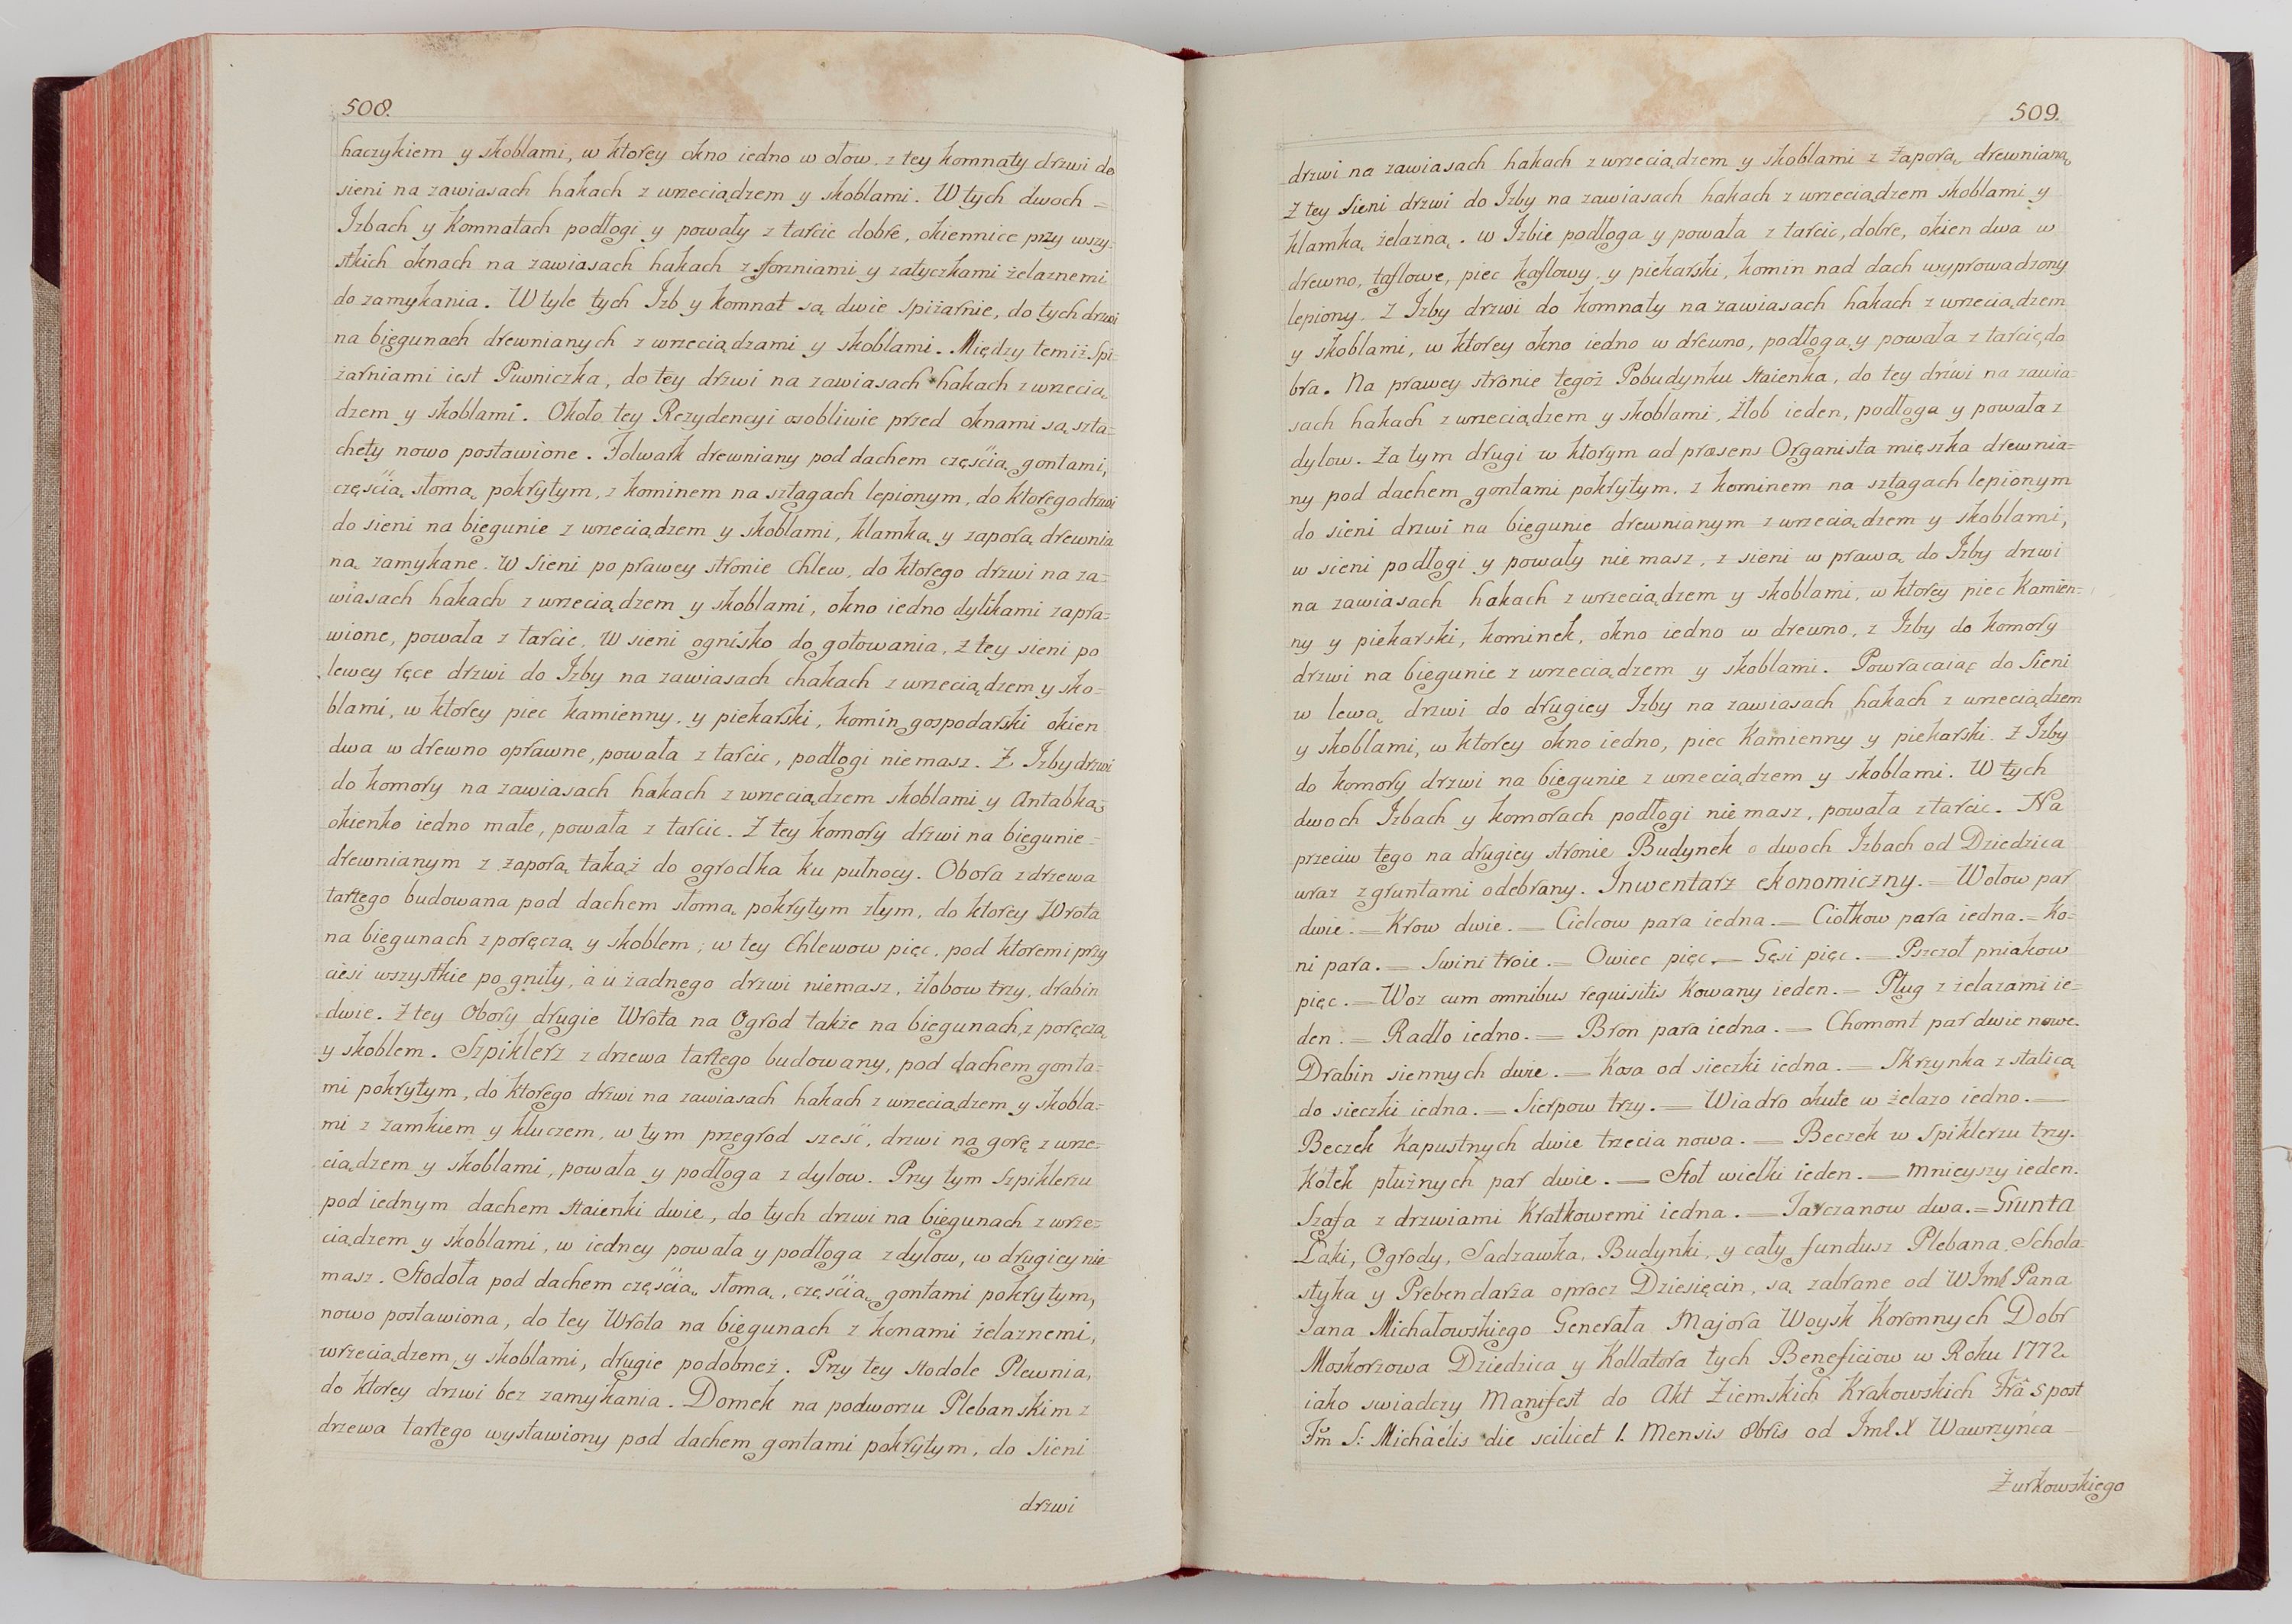 508.
haczykiem y skoblami, w ktorey okno iedno w ołow, z tey komnaty drzwi do
sieni na zawiasach hakach z wrzeciądzem y skoblami. W tych dwoch =
Izbach y Komnatach podłogi y powały z tarcic dobre, okiennice przy wszy=
stkich oknach na zawiasach hakach z sforzniami y zatyczkami żelaznemi
do zamykania. W tyle tych Izb y komnat są dwie spiżarnie, do tych drzwi
na biegunach drewnianych z wrzeciądzami y skoblami. Między temiż Spi=
żarniami iest Piwniczka, do tey drzwi na zawiasach hakach z wrzecią=
dzem y skoblami. Około tey Rezydencyi osobliwie przed oknami są szta=
chety nowo postawione. Folwark drewniany pod dachem częścią gontami,
częścią słomą pokrytym, z kominem na sztagach lepionym, do ktorego drzwi
do sieni na biegunie z wrzeciądzem y skoblami, klamką y zaporą drewnia
ną zamykane. W Sieni po prawey stronie Chlew, do ktorego drzwi na za=
wiasach hakach z wrzeciądzem y skoblami, okno iedno dylikami zapra=
wione, powała z tarcic. W sieni ognisko do gotowania, z tey sieni po
lewey ręce drzwi do Izby na zawiasach chakach z wrzeciądzem y sko=
blami, w ktorey piec kamienny, y piekarski, komin gospodarski okien
dwa w drewno oprawne, powała z tarcic, podłogi niemasz. Z Izby drzwi
do komory na zawiasach hakach z wrzeciądzem skoblami y Antabką,
okienko iedno małe, powała z tarcic. Z tey komory drzwi na biegunie =
drewnianym z zaporą takąż do ogrodka ku pułnocy. Obora z drzewa
tartego budowana pod dachem słomą pokrytym złym, do ktorey Wrota
na biegunach z poręczą y skoblem; w tey Chlewow pięc, pod ktoremi przy
ciesi wszystkie pogniły, á u żadnego drzwi niemasz, żłobow trzy, drabin
dwie. Z tey Obory drugie Wrota na Ogrod także na biegunach z poręczą
y skoblem. Szpiklerz z drzewa tartego budowany, pod dachem gonta=
mi pokrytym, do ktorego drzwi na zawiasach hakach z wrzeciądzem y skobla=
mi z zamkiem y kluczem, w tym przegrod sześć, drzwi na gorę z wrze=
ciądzem y skoblami, powała y podłoga z dylow. Przy tym Szpiklerzu
pod iednym dachem staienki dwie, do tych drzwi na biegunach z wrze=
ciądzem y skoblami, w iedney powała y podłoga z dylow, w drugiey nie
masz. Stodoła pod dachem częścią słomą, częścią gontami pokrytym,
nowo postawiona, do tey Wrota na biegunach z konami żelaznemi,
wrzeciądzem y skoblami, drugie podobneż. Przy tey stodole Plewnia,
do ktorey drzwi bez zamykania. Domek na podworzu Plebanskim z
drzewa tartego wystawiony pod dachem gontami pokrytym, do Sieni
drzwi
509.
drzwi na zawiasach hakach z wrzeciądzem y skoblami z zaporą drewnianą,
Z tey sieni drzwi do Izby na zawiasach hakach z wrzeciądzem skoblami y
klamką żelazną. w Izbie podłoga y powała z tarcic, dobre, okien dwa w
drewno, taflowe, piec kaflowy, y piekarski, komin nad dach wyprowadzony
lepiony. Z Izby drzwi do komnaty na zawiasach hakach z wrzeciądzem
y skoblami, w ktorey okno iedno w drewno, podłoga y powała z tarcic, do
bra. Na prawey stronie tegoż Pobudynku staienka, do tey drzwi na zawia=
sach hakach z wrzeciądzem y skoblami, żłob ieden, podłoga y powała z
dylow. Za tym drugi w ktorym ad præsens Organista mięszka drewnia=
ny pod dachem gontami pokrytym, z kominem na sztagach lepionym
do sieni drzwi na biegunie drewnianym z wrzeciądzem y skoblami,
w sieni podłogi y powały niemasz, z sieni w prawą do Izby drzwi
na zawiasach hakach z wrzeciądzem y skoblami, w ktorey piec Kamien=
ny y piekarski, kominek, okno iedno w drewno, z Izby do komory
drzwi na biegunie z wrzeciądzem y skoblami. Powracaiąc do Sieni
w lewą drzwi do drugiey Izby na zawiasach hakach z wrzeciądzem
y skoblami, w ktorey okno iedno, piec Kamienny y piekarski. Z Izby
do komory drzwi na biegunie z wrzeciądzem y skoblami. W tych
dwoch Izbach y komorach podłogi niemasz, powała z tarcic. Na
przeciw tego na drugiey stronie Budynek o dwoch Izbach od Dziedzica
wraz z gruntami odebrany. Inwentarz ekonomiczny. = Wołow par
dwie. = Krow dwie. = Cielcow para iedna. = Ciołkow para iedna. = Ko=
ni para. = Swini troie. = Owiec pięc. = Gęsi pięc. = Pszczoł pniakow
pięc. = Woz cum omnibus requisitis Kowany ieden. = Pług z żelazami ie=
den. = Radło iedno. = Bron para iedna. = Chomont par dwie nowe.
Drabin siennych dwie. = Kosa od sieczki iedna. = Skrzynka z stalicą
do sieczki iedna. = Sierpow trzy. = Wiadro okute w żelazo iedno. =
Beczek Kapustnych dwie trzecia nowa. = Beczek w Spiklerzu trzy.
Kołek płużnych par dwie. = Stoł wielki ieden. = mnieyszy ieden.
Szafa z drzwiami Kratkowemi iedna. = Tarczanow dwa. = Grunta
Łąki, Ogrody, Sadzawka, Budynki, y cały fundusz Plebana, Schola=
styka y Prebendarza oprocz Dziesięcin, są zabrane od WImć Pana
Jana Michałowskiego Generała Majora Woysk Koronnych Dobr
Moskorzowa Dziedzica y Kollatora tych Beneficiow w Roku 1772
iako swiadczy Manifest do Akt Ziemskich Krakowskich Frâ 5 post
Fm S: Michaëlis die scilicet 1. Mensis 8bris od Imć X Wawrzyńca
Żurkowskiego